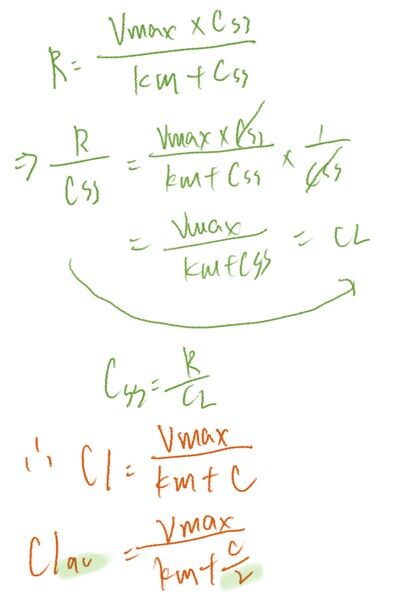 R = Vmax × Css / km + Css
⇒ R / Css = Vmax × Css / km + Css × 1 / Css
= Vmax / km + Css = CL
Css = R / CL
∴ Cl = Vmax / km + C
Clav = Vmax / km + C/2